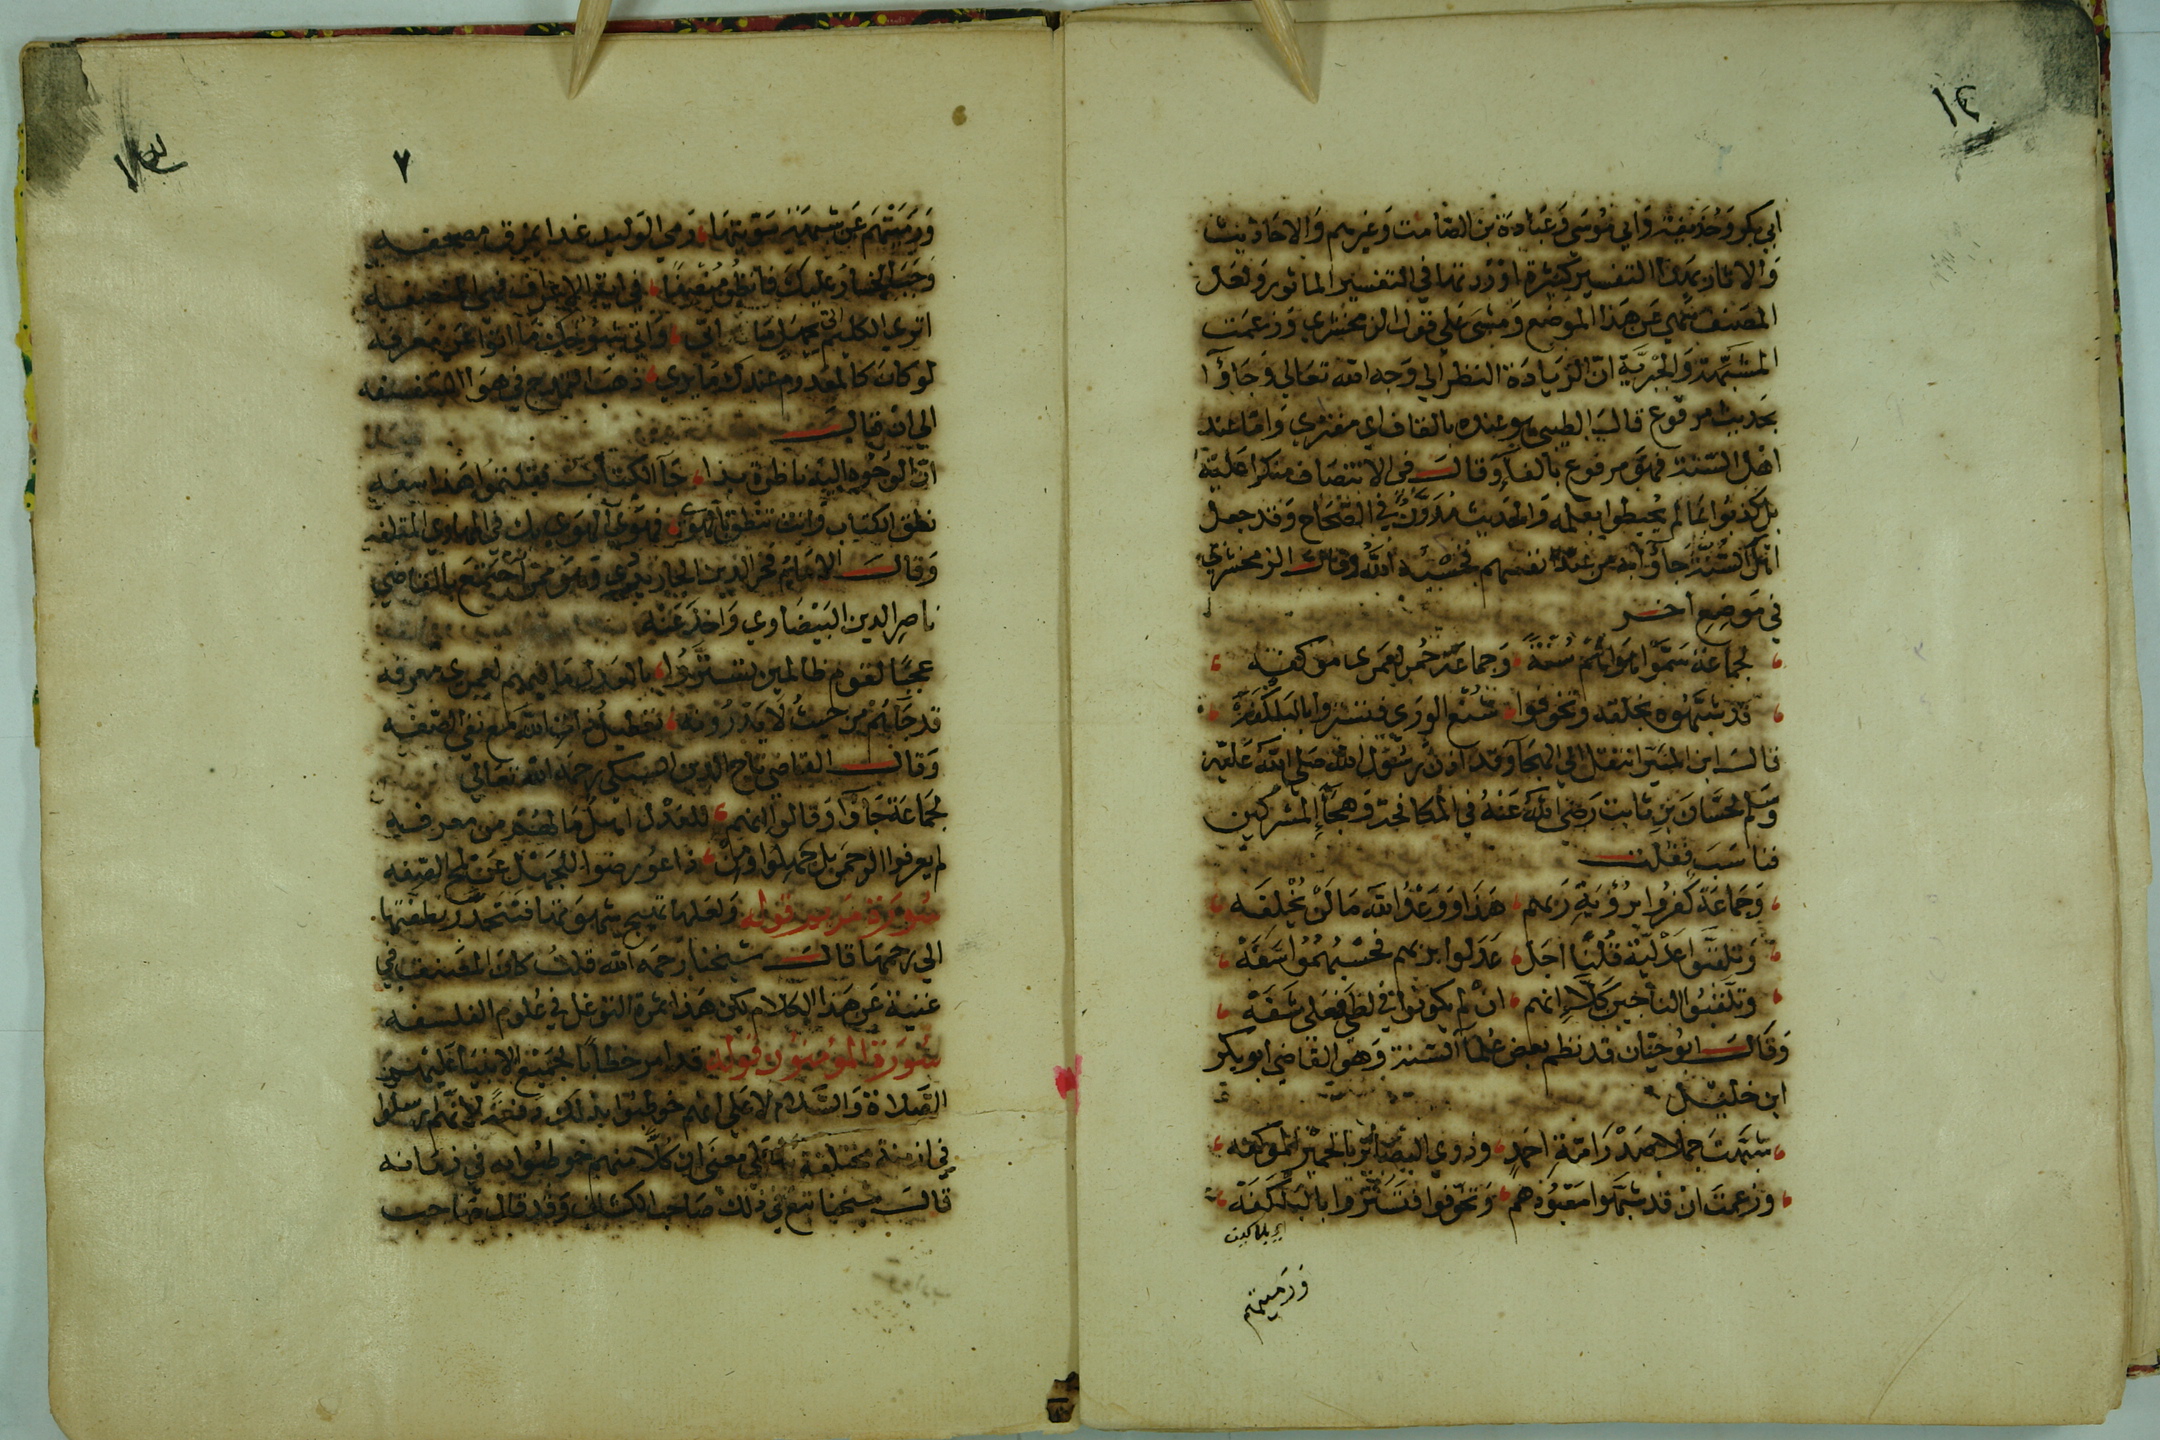 ١٢
ابي بكر وَحُذَيفَة وَابي مُوسَى وَعُبادَة بن الصَّامت وَغيرهم وَالاحَاديث
وَالاثار بهَذا التفسير كثيرة اوْرَدتها في التفسير الماثور وَلعَل
المصَنف سُهي عَن هَذا الموضع وَمشى عَلي قول الزمخشري وَزعمت
المشبّهة وَالجبْريَّة انّ الزيادَة النظر الي وَجه الله تعَالي وَجَاؤا
بحَديث مرقوع قالَ الطيبي هو عنده بالقاف اي مفترى وَامّا عند
اهْل السّنة فهوَ مرفوع بالفاء وَقالَ في الانتصَاف
بل كذبوا بمَا لم يُحيطوا بعلمه وَالحديث مُدَوَّن في الصّحَاح وَقد جعل
اهْل السُّنَّة جَاؤا به من عند انفسهم فحسْبه الله وقالَ الزمخشري
في مَوضِع اخر
لجماعَة سَمَّوْا هَوَاهُم سُنّةً وَجماعَة حُمر لعَمرى موكفه
قد شبَّهوُه بخلقه وتخوّفوا شُنَعَ الوَرى فتستروا بالبَلكَفَهْ
قالَ ابن المنَيّر انتقل الي الهجَا وَقد اذن رسُول الله صَلي الله عَليْه
وَسَلم لحسَّان بن ثابت رَضي الله عَنهُ في المكافحة وَهجَآءِ المشركين
فتاسَّبَ فقلت
وَجَماعَة كفَرُوا برُؤيَةِ رَبهم هَذا وَوَعْدُ الله مَا لَنْ يُخْلِفَه
وَتلقّبُوا عَدْليّة قُلنَا اجَل عَدَلوا بربهم فحسْبُهُمُوا سَفَهْ
وتلقّبُوا الناجين كَلَّا انهم انْ لم يكونوا في لظى فعَلى شَفَهْ
وَقَالَ ابُو حيّان قد نظم بعض عُلماء السّنة وَهوَ القَاضي ابو بكر
ابن خليْل
شبّهْتَ جهلا صَدْرَ امّةِ احمَدٍ وذوي البصَائر بالحَمير الموكفه
وزعمتَ انْ قد شبّهوا مَعْبُودَهم وَتخوّفوا فتَسَتّرُوا بالبَلكَفَهْ
اي بلا كيف
وَرَميتهم
١٣
٧
وَرَمَيْتَهم عَن نبعَة سَوّيتهَا رَمى الوَليد غدا يمزق مصحفه
وَجَبَ الخسَارُ عليكَ فانظُر مُنصفًا في اية الاعراف فهى المنصفه
اترى الكليم اتى بجهل مَا اتى وَاتى شيُوخك مَا اتوا عَن مَعرفه
لو كان كالمعدوم عندك مَا يرى ذهَبَ التمدح في هَواء السفسفه
الي ان قالَ
انّ الوجُوه اليْه ناظرة بذا جَآ الكتاب فقلتمُ هَذا سَفه
نطق الكتاب وَانت تنطق بالهوى فهَوى الهَوى بك في المهَاوي المتلفه
وَقالَ الامَامُ فخر الدين الجاربردي وَهو ممّن اجتمَع بالقاضي
ناصِر الدين البَيْضَاوي وَاخذ عَنه
عجبًا لقوم ظالمين تستّرُوا بالعَدل مَا فيهم لعمرى مَعرفه
قد جَاءَهُم من حيثُ لا يَدْرُونَه تعطيلُ ذات الله مَع نفى الصّفه
وَقالَ القاضي تاج الدين السبكي رحمَهُ الله تعَالي
لجمَاعَة جَاؤا وَقالوا انهم للعَدْل اهلٌ مَا لهُم من معرفه
لم يعرفوا الرحمَن بل جَهلوا وَمِن ذا عَرضوا للجَهْل عَن لمح الصّفه
سُورَة مَريم قوله وَلعَلها تهيج شهوَتها فتنحَدر نطفتها
الي رحمهَا قالَ شيخنا رَحمَه الله قلتُ كانَ المصَنف في
غنية عَن هَذا الكلام لكن هَذا ثمرة التوغل في عُلوم الفلسفه
سُورَة المؤمنُون قوله قد امر خطابًا لجَميْع الانبيَاءِ عَليْهمْ
الصَّلاة وَالسَّلام لا عَلى انهم خوطبُوا بذلك دفعَة لانّهم ارسلوا
في ازمنة مختلفة بَل عَلي مَعنَى ان كُلًّا منهم خوطبَ به في زمانه
قالَ شيخنا تبع في ذلك صَاحب الكشاف وَقد قال صَاحب